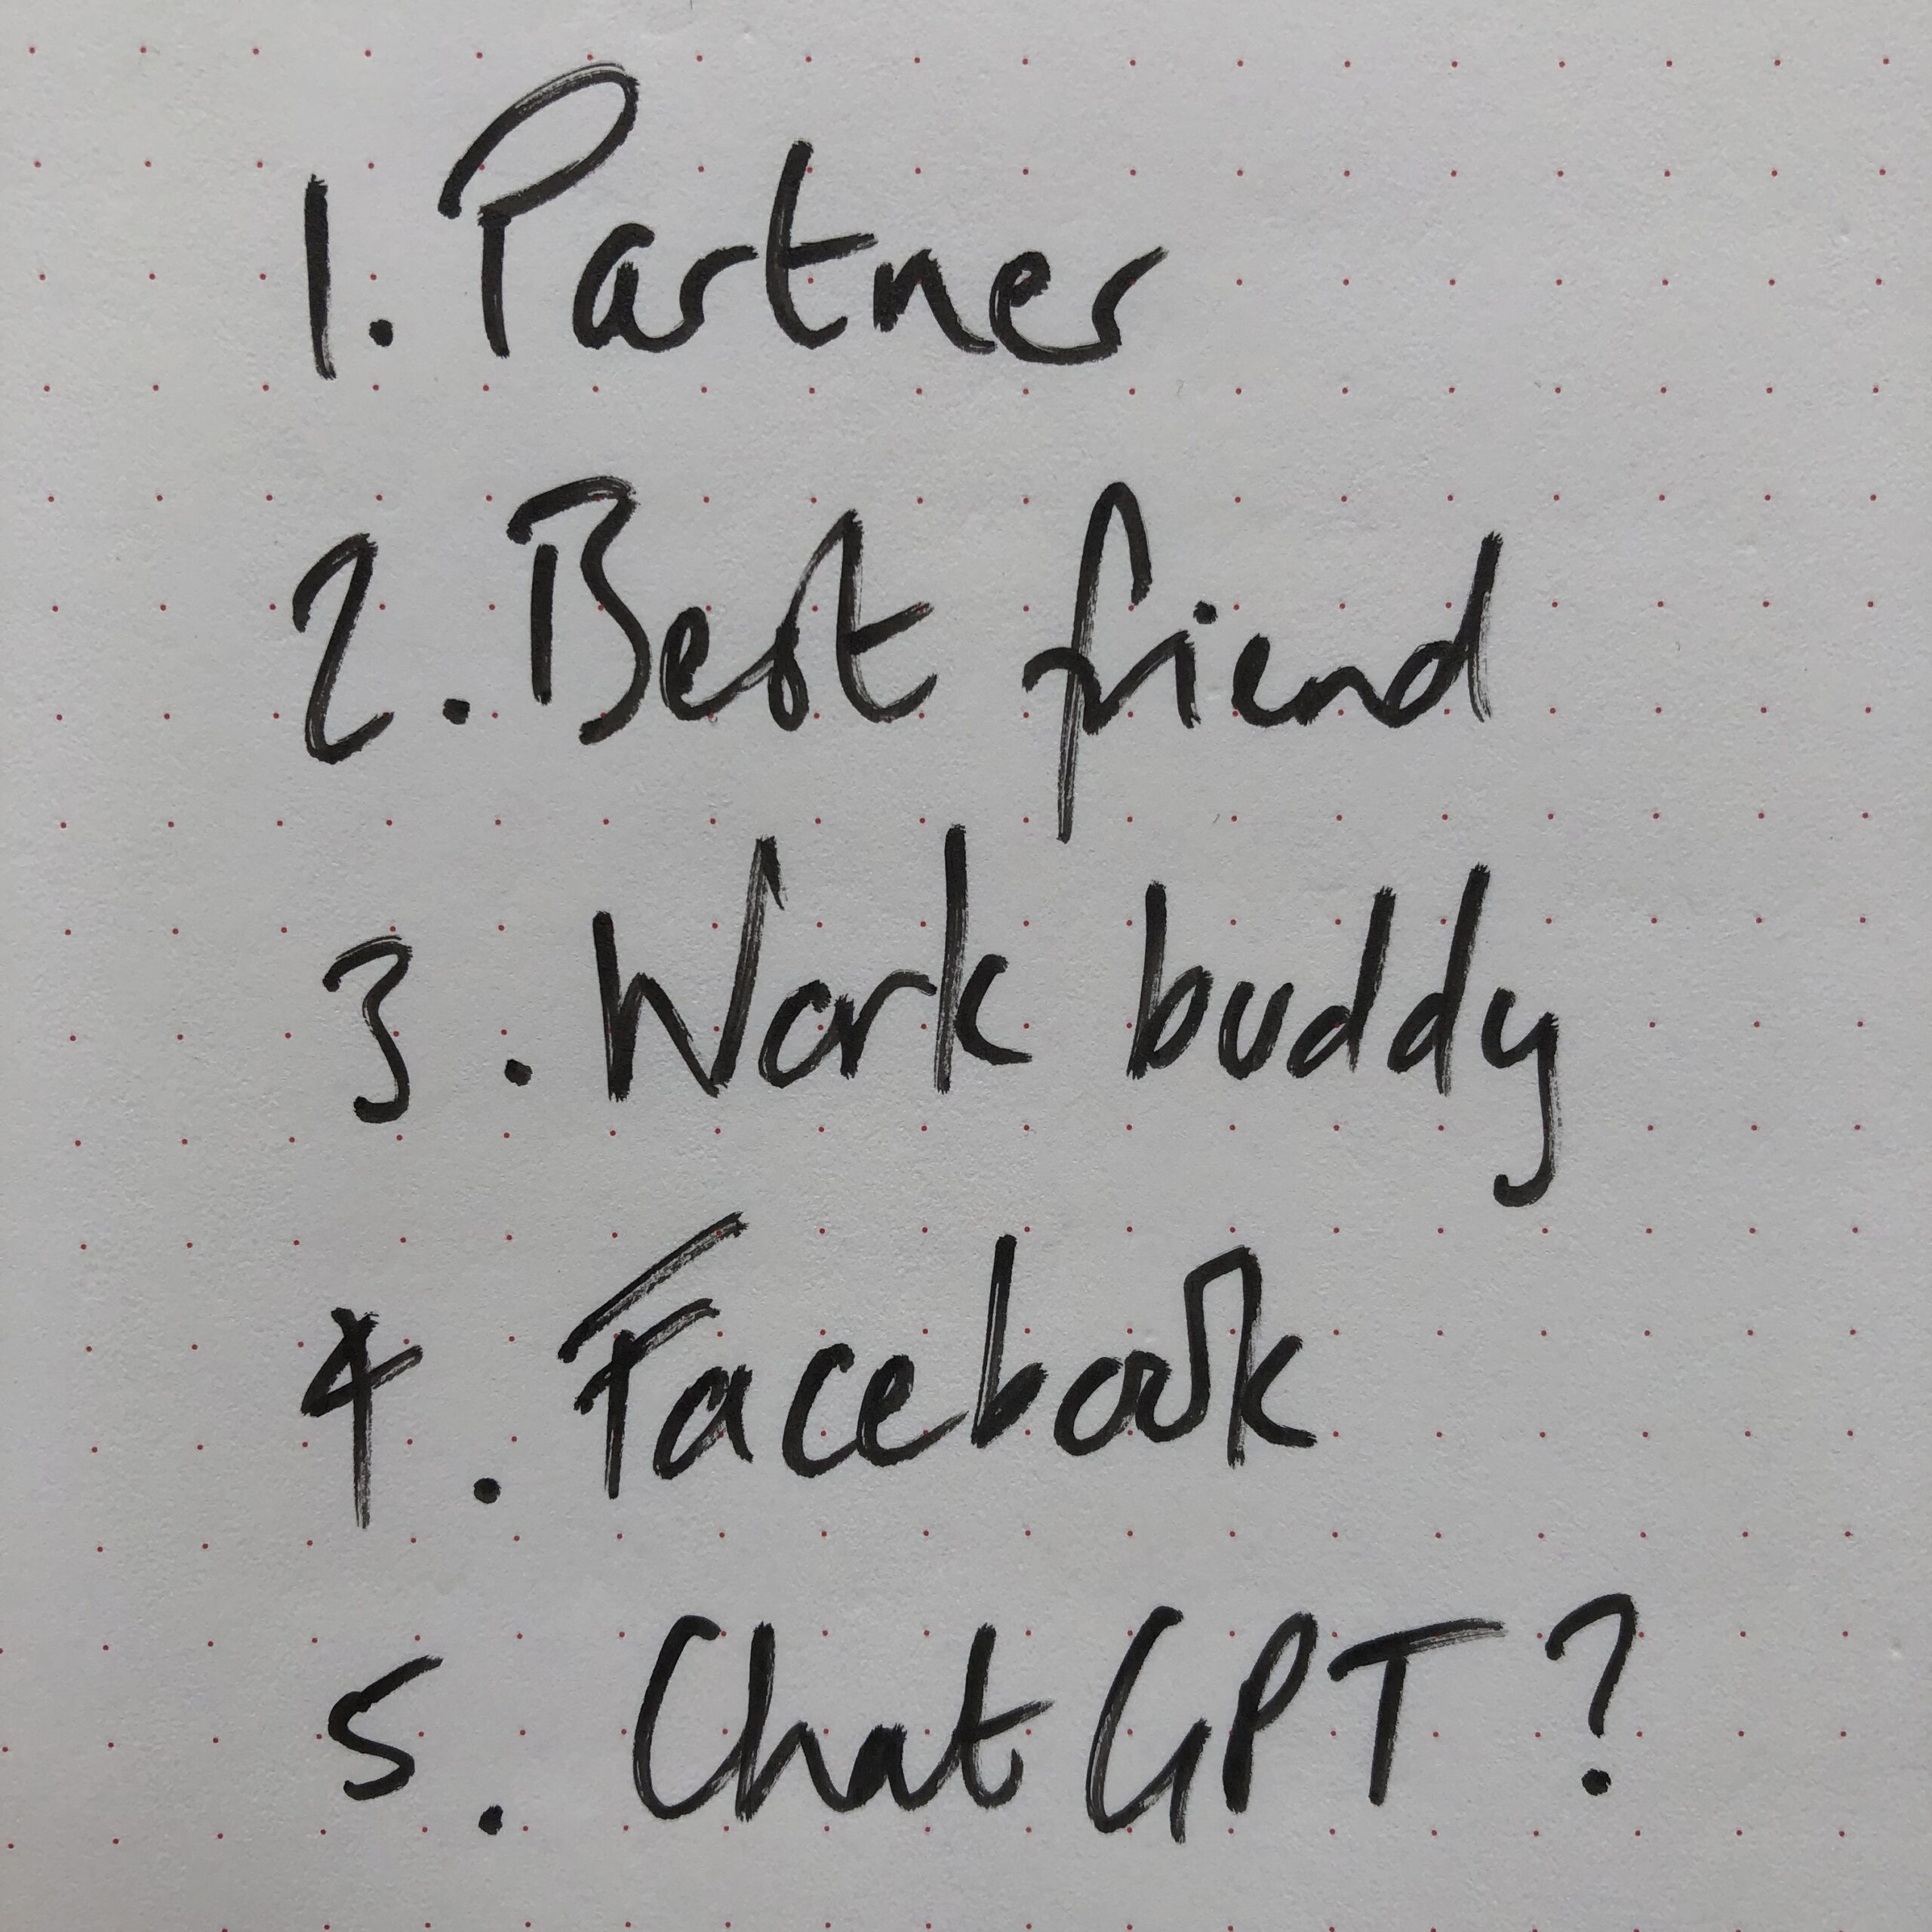 1. Partner
2. Best friend
3. Work buddy
4. Facebook
5. Chat GPT?